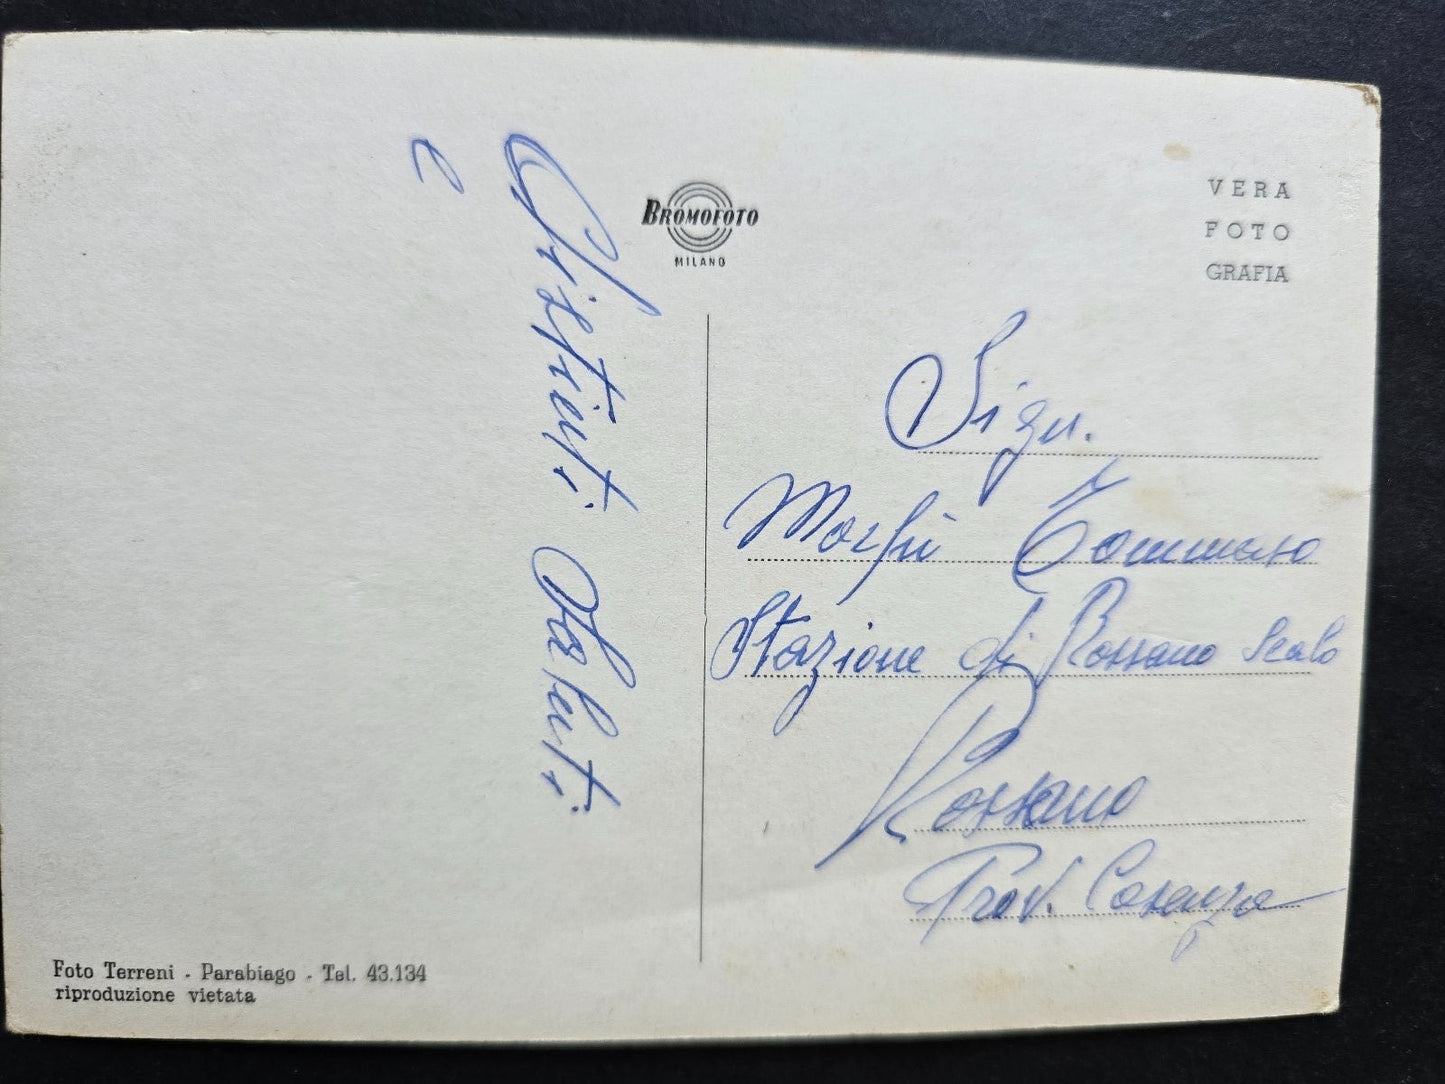 Distinti Saluti
e
BROMOFOTO
MILANO
VERA
FOTO
GRAFIA
Sign.
Tommaso
Stazione di Rossano Scalo
Rossano
Prov. Cosenza
Foto Terreni - Parabiago - Tel. 43.134
riproduzione vietata